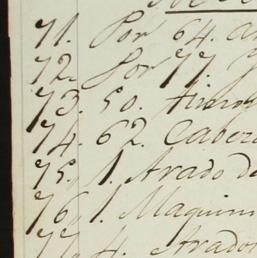 71. Por 64.
72. Por 77.
73. 50.
74. 62. Cabez
75. 1. Arado de
76. 1. Maquin
77. 4. Arado